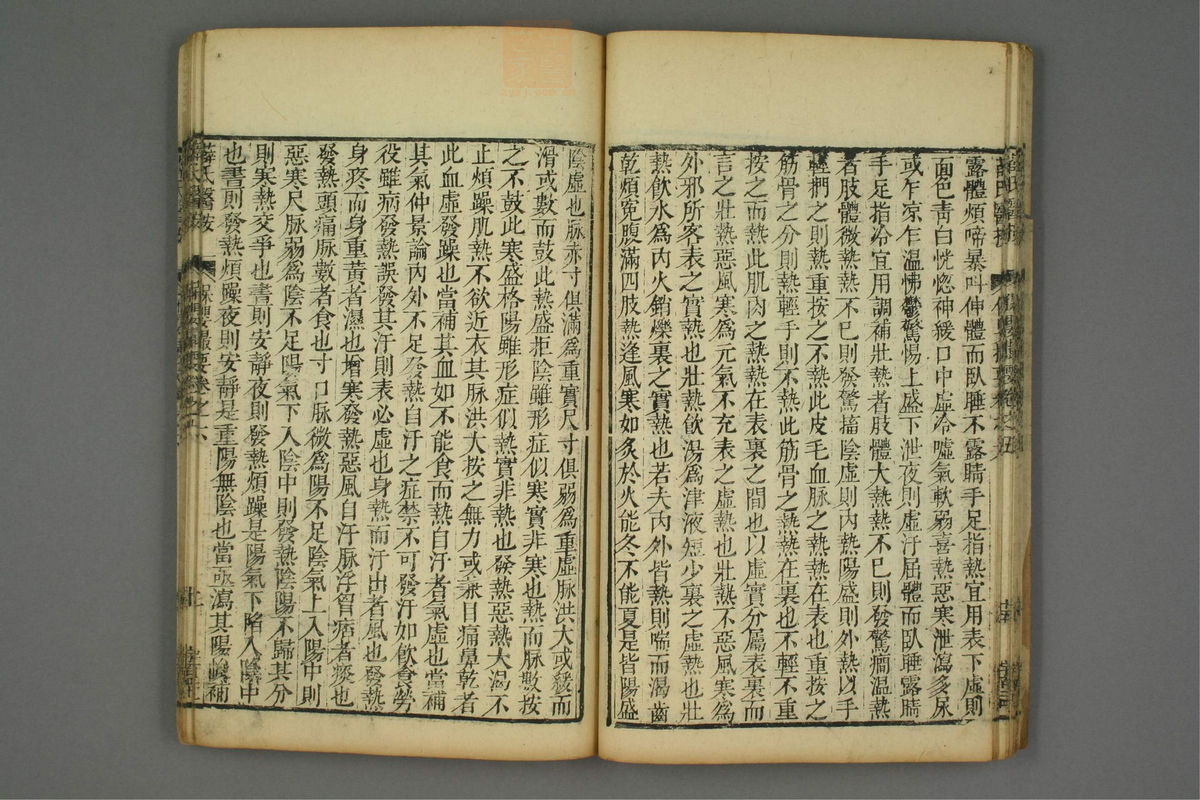 露體煩啼暴叫伸體而臥睡不露睛手足指熱宜用表下虛則
面色青白恍惚神緩口中虛冷噓氣軟弱喜熱惡寒泄瀉多尿
或乍凉乍温怫鬱驚惕上盛下泄夜則虛汗屈體而臥睡露睛
手足指冷宜用調補壯熱者肢體大熱熱不已則發驚癎温熱
者肢體微熱熱不已則發驚搐陰虛則内熱陽盛則外熱以手
輕捫之則熱重按之不熱此皮毛血脉之熱熱在表也重按之
筋骨之分則熱輕手則不熱此筋骨之熱熱在裏也不輕不重
按之而熱此肌肉之熱熱在表裏之間也以虛實分屬表裏而
言之壯熱惡風寒爲元氣不充表之虛熱也壯熱不惡風寒爲
外邪所客表之實熱也壯熱飲湯爲津液短少裏之虛熱也壯
熱飲水爲内火銷爍裏之實熱也若夫内外皆熱則喘而渴齒
乾煩寃腹滿四肢熱逢風寒如炙於火能冬不能夏是皆陽盛
陰虛也脉亦寸俱滿爲重實尺寸俱弱爲重虛脉洪大或緩而
滑或數而鼓此熱盛拒陰雖形症似寒實非寒也熱而脉數按
之不鼓此寒盛格陽雖形症似熱實非熱也發熱惡熱大渴不
止煩躁肌熱不欲近衣其脉洪大按之無力或兼目痛鼻乾者
此血虛發躁也當補其血如不能食而熱自汗者氣虛也當補
其氣仲景論内外不足發熱自汗之症禁不可發汗如飲食勞
役雖病發熱誤發其汗則表必虛也身熱而汗出者風也發熱
身疼而身重黄者濕也增寒發熱惡風自汗脉浮胷痞者痰也
發熱頭痛脉數者食也寸口脉微爲陽不足陰氣上入陽中則
惡寒尺脉弱爲陰不足陽氣下入陰中則發熱陰陽不歸其分
則寒熱交爭也晝則安靜夜則發熱煩躁是陽氣下陷入陰中
也晝則發熱煩躁夜則安靜是重陽無陰也當亟瀉其陽峻補
薛氏醫按
保嬰撮要卷之六